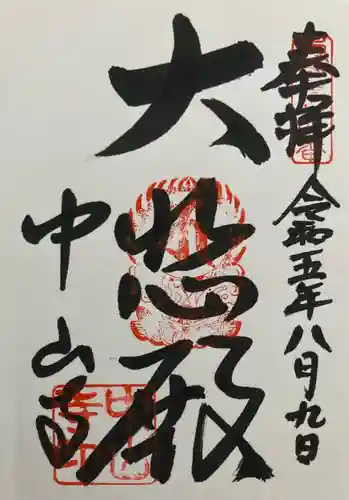 奉拝
令和五年八月九日
大悲殿
中山寺